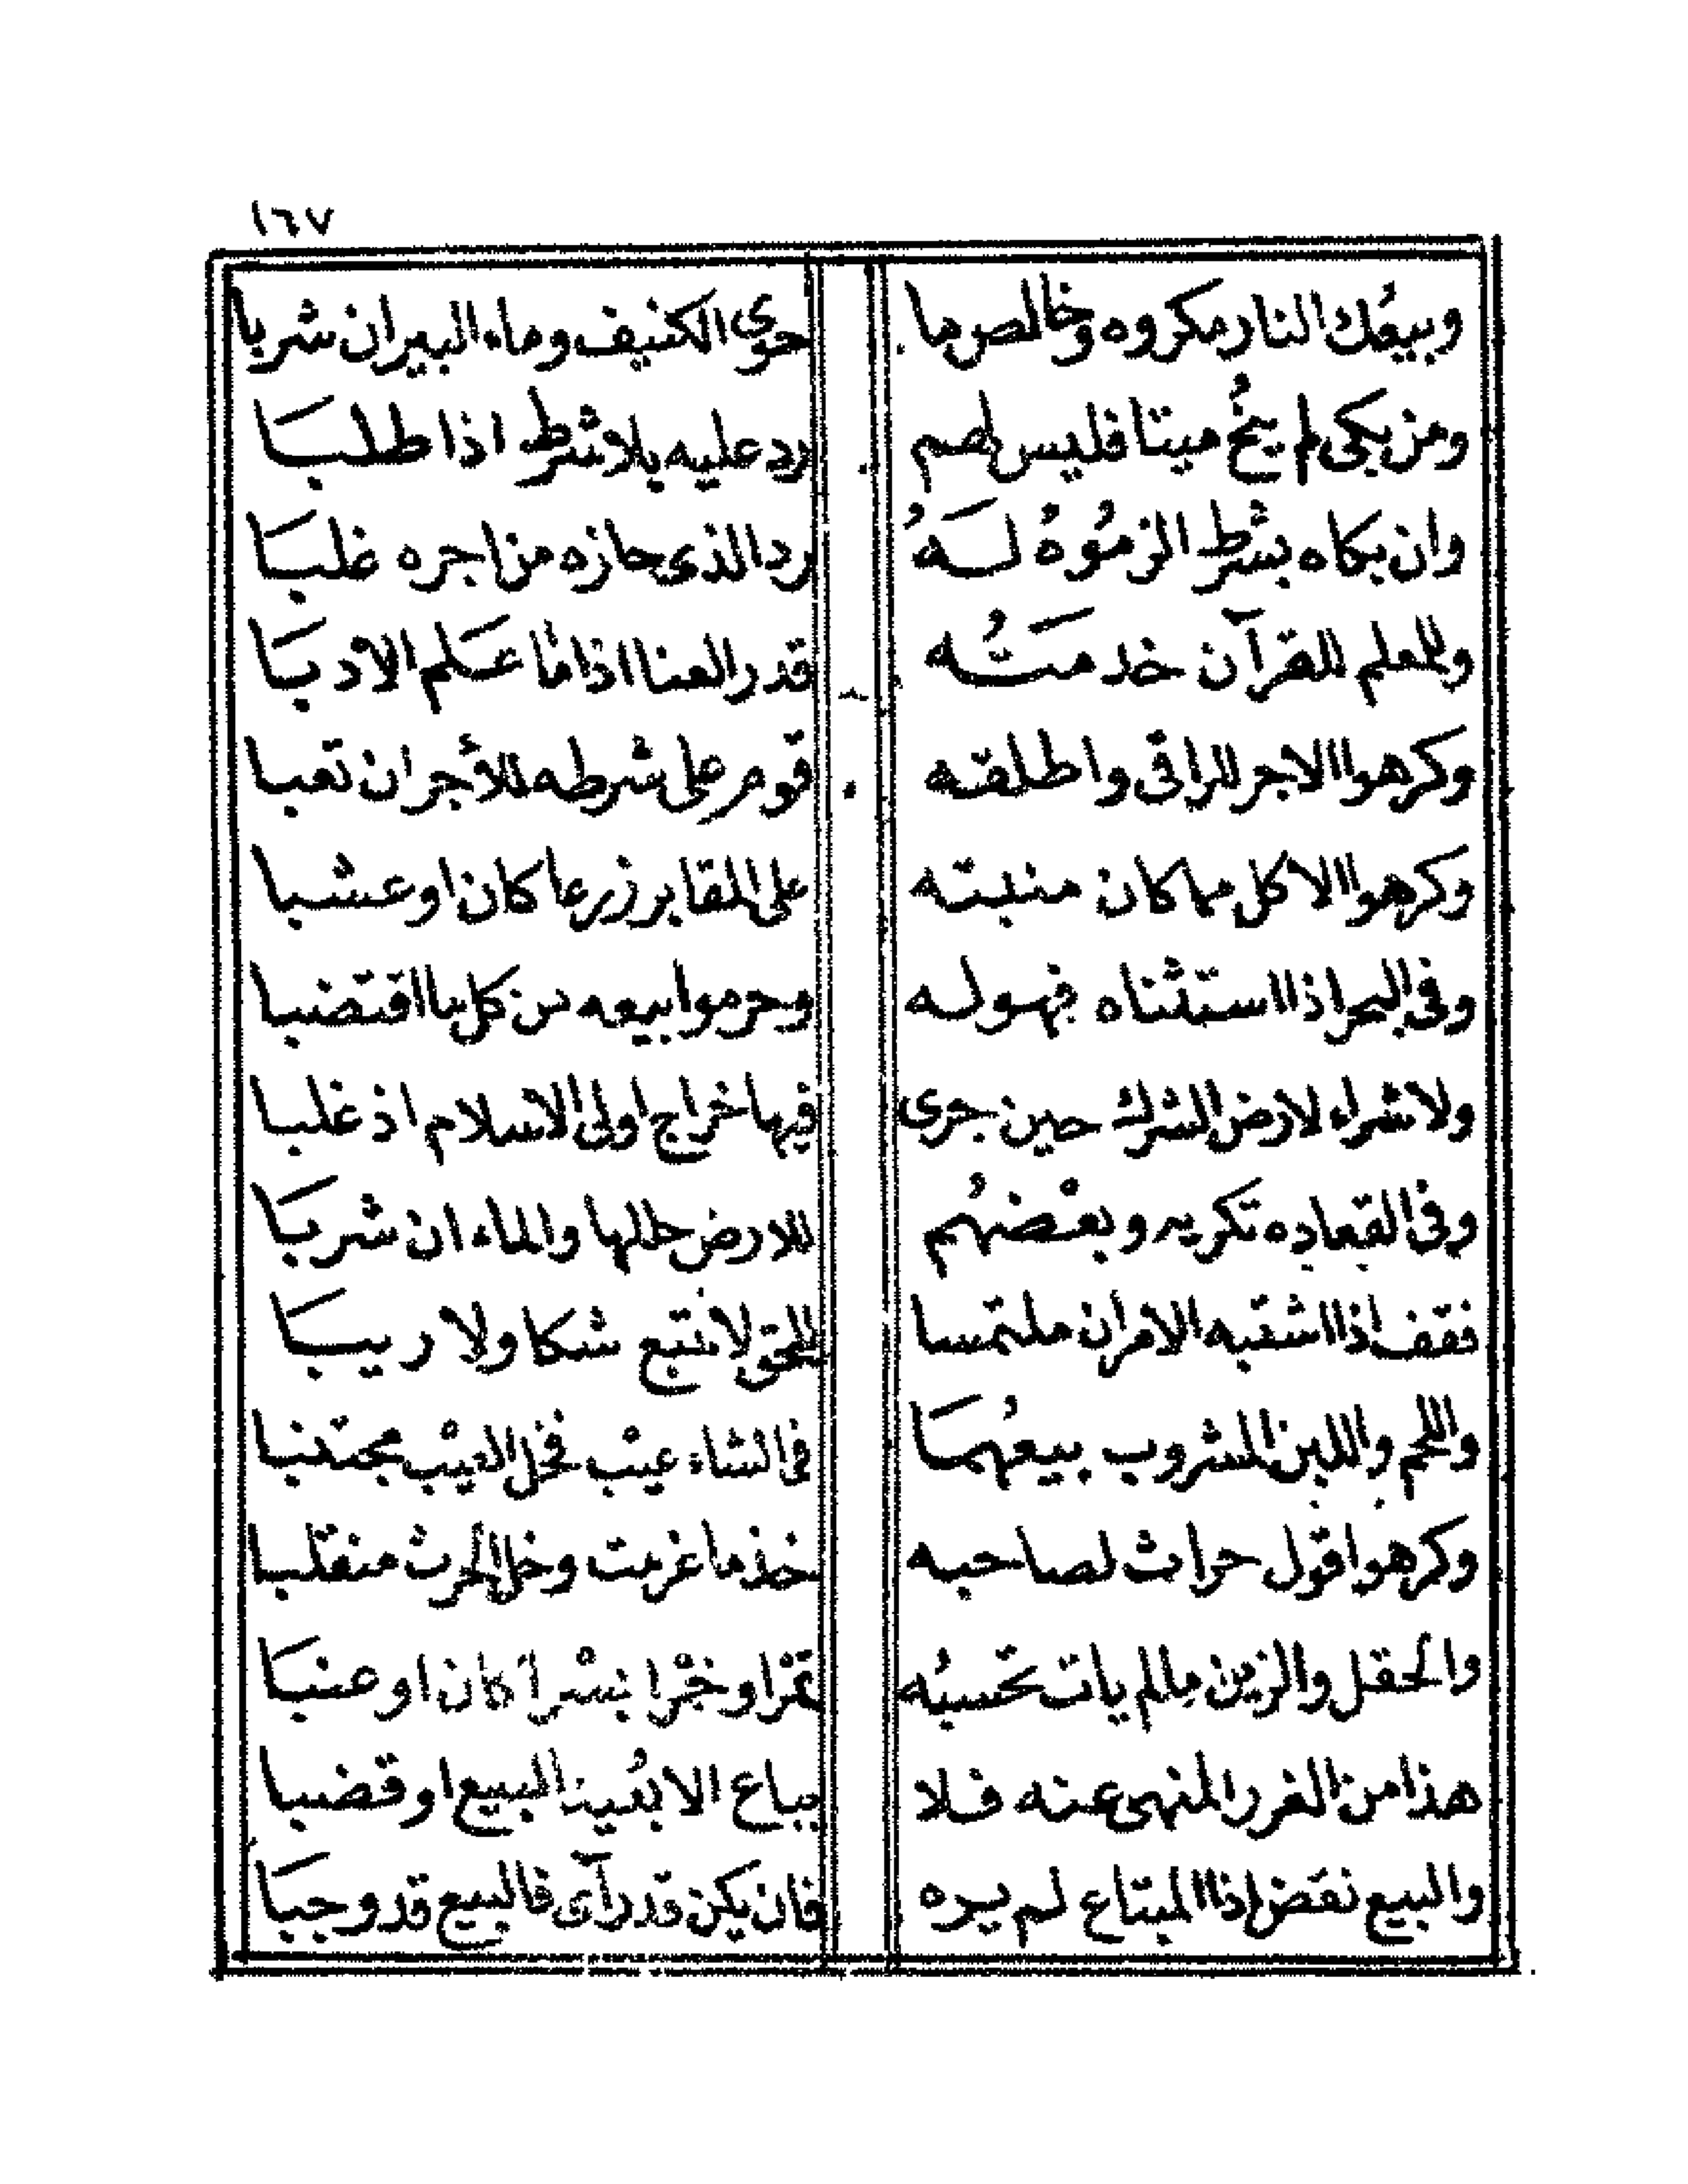 ١٦٧
وبيعُك النار مكروه وخالص ما حوى الكنيف وماء البيران شربا
ومن بكى لم ينُح ميتا فليس لهم رد عليه بلا شرط اذا طلبَا
وان بكاه بشرط الزمُوهُ لَهُ رد الذى حازه من اجره غلبَا
وللمعلم للقرآن خدمَتُه قدر العنا اذا ما عَلم الادبَا
وكرهوا الاجر للراقى واطلقه قوم على شرطه للأجر ان تعبا
وكرهوا الاكل مما كان منبته على المقابر زرعا كان او عشبا
وفى البحر اذا استثناه فهو له وحرموا بيعه من كل ما اقتضبا
ولا شراء لارض الشرك حين جرى فيها خراج اولى الاسلام اذ غلبا
وفى القعاده تكريه وبعْضهُم للارض حللها والماء ان شربَا
فقف اذا اشتبه الامران ملتمسا للحق لا تتبع شكا ولا ريبَا
واللحم واللبن المشروب بيعهُمَا فى الشاء عيْب فخل العيْب مجتنبا
وكرهوا قول حراث لصاحبه خذ ما غرمت وخل الحرث منقلبا
والحقل والزبن مالم يات تحسبُه تمْرا وخبْرا بسْرا كان او عنبَا
هذا من الغرر المنهى عنه فلا يباع الا بُعيد البيع او قضبا
والبيع نقض اذا المبتاع لم يره فان يكن قد رآى فالبيع قد وجبَا